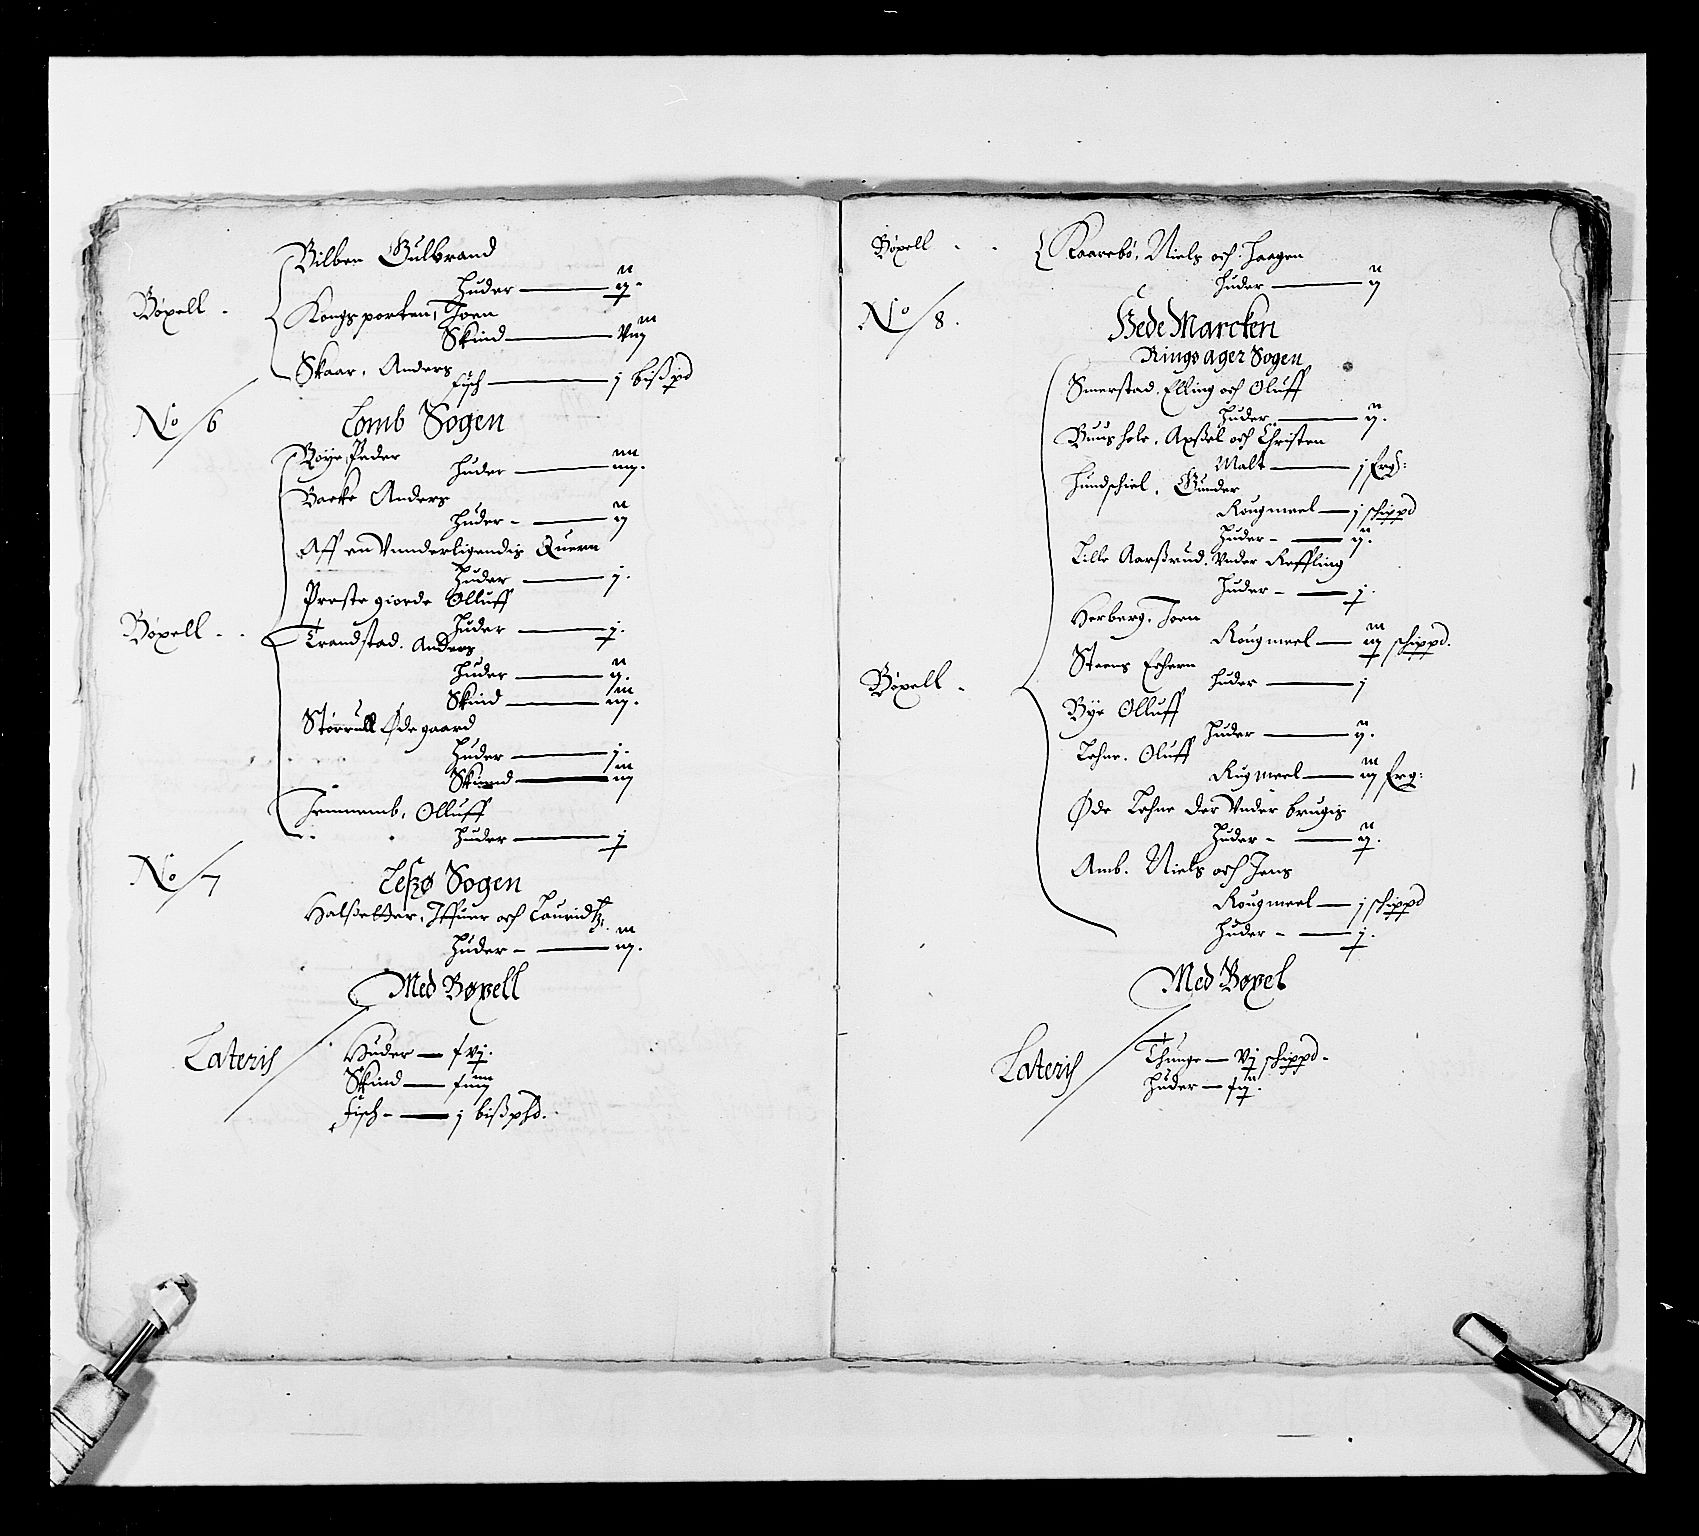 Bilben Gulbrand
Huder — ij
Bøxell.
Kongsporten, Joen
Skind — viij
Skaar, Anders
fisch — j bißpd
No 6
Lomb Sogen
Røye Peder
Huder — iiij.
Backe Anders
Huder — ij
Aff en Vnderligendis Quern
Huder — j.
Preste giorde Olluff
Bøxell
Huder — j.
Trandstad. Anders
Huder — ij.
Skind — iij.
Størrull Øde gaard
Huder — j.
Skinnd — iij
Olluff
Huder — j
No 7
Leßø Sogen
Halßetter, Iffuer och Lauridtz.
Huder — iij.
Med Bøxell
Lateris
Huder — xvj.
Skind — xiiij
fisch — j bißphd.
Bøxell
Kaarebø, Niels och Haagen
Huder — ij
No 8.
Hede Marcken
Ringsager Sogen
Smerstad. Elling och Oluff
Huder — ij.
Buushole. Axßel och Christen
Malt — j
Hundschiel. Gunder
Rougmeel — j schippd
Huder — ij.
Lille Aarßrud. Vnder Reffling
Huder — j.
Herberg, Joen
Rougmeel — iij schippd.
Steens Eehern
Huder — j
Bøxell
Bye Olluff
Huder — ij.
Lehne. Oluff
Rugmeel — iij
Øde Lehne der Vnder brugis
Huder — ij.
Amb. Niels och Jens
Rougmeel — j schippd
Huder — j.
Med Bøxel
Lateris
Thunge — vj schippd.
Huder — xij.